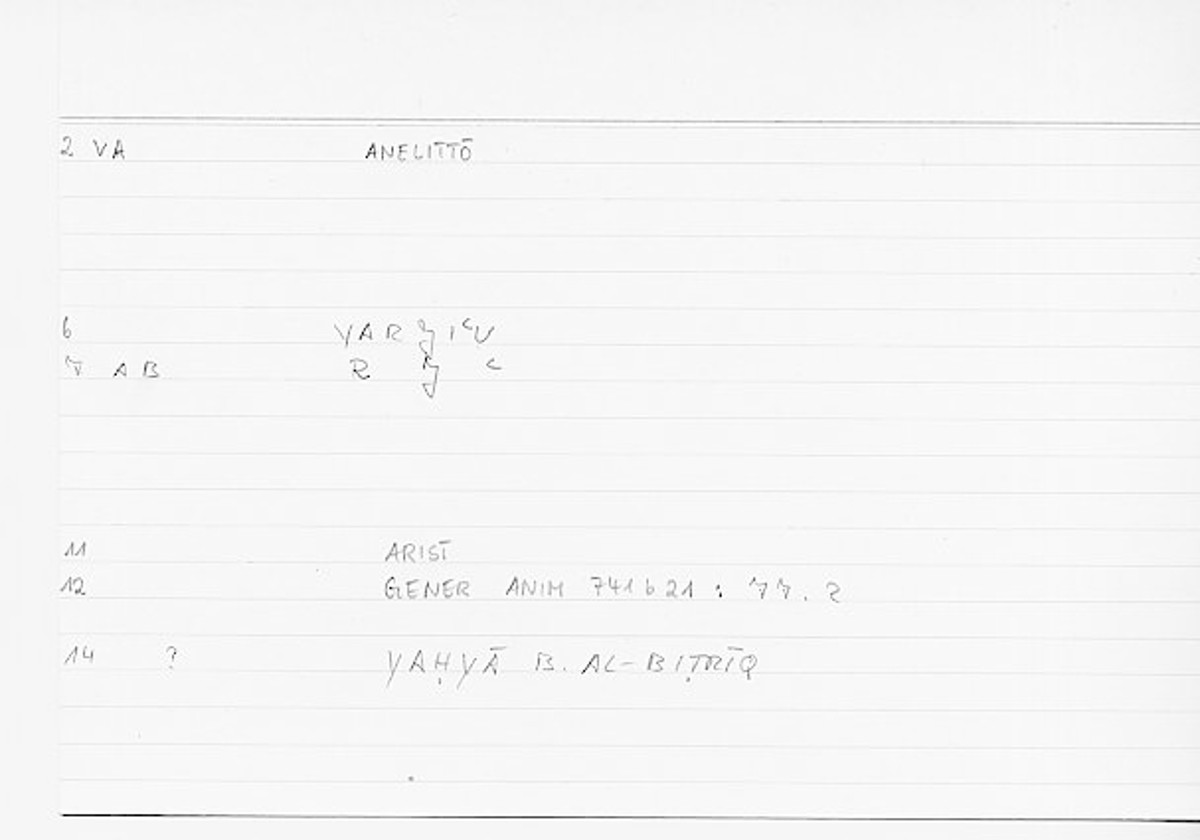 2 VA ANELITTŌ
6 YARǧIʿU
7 AB R ǧ ʿ
11 ARIST
12 GENER ANIM 741b21 : 77.2
14 ? YAḤYĀ B. AL-BIṬRĪQ